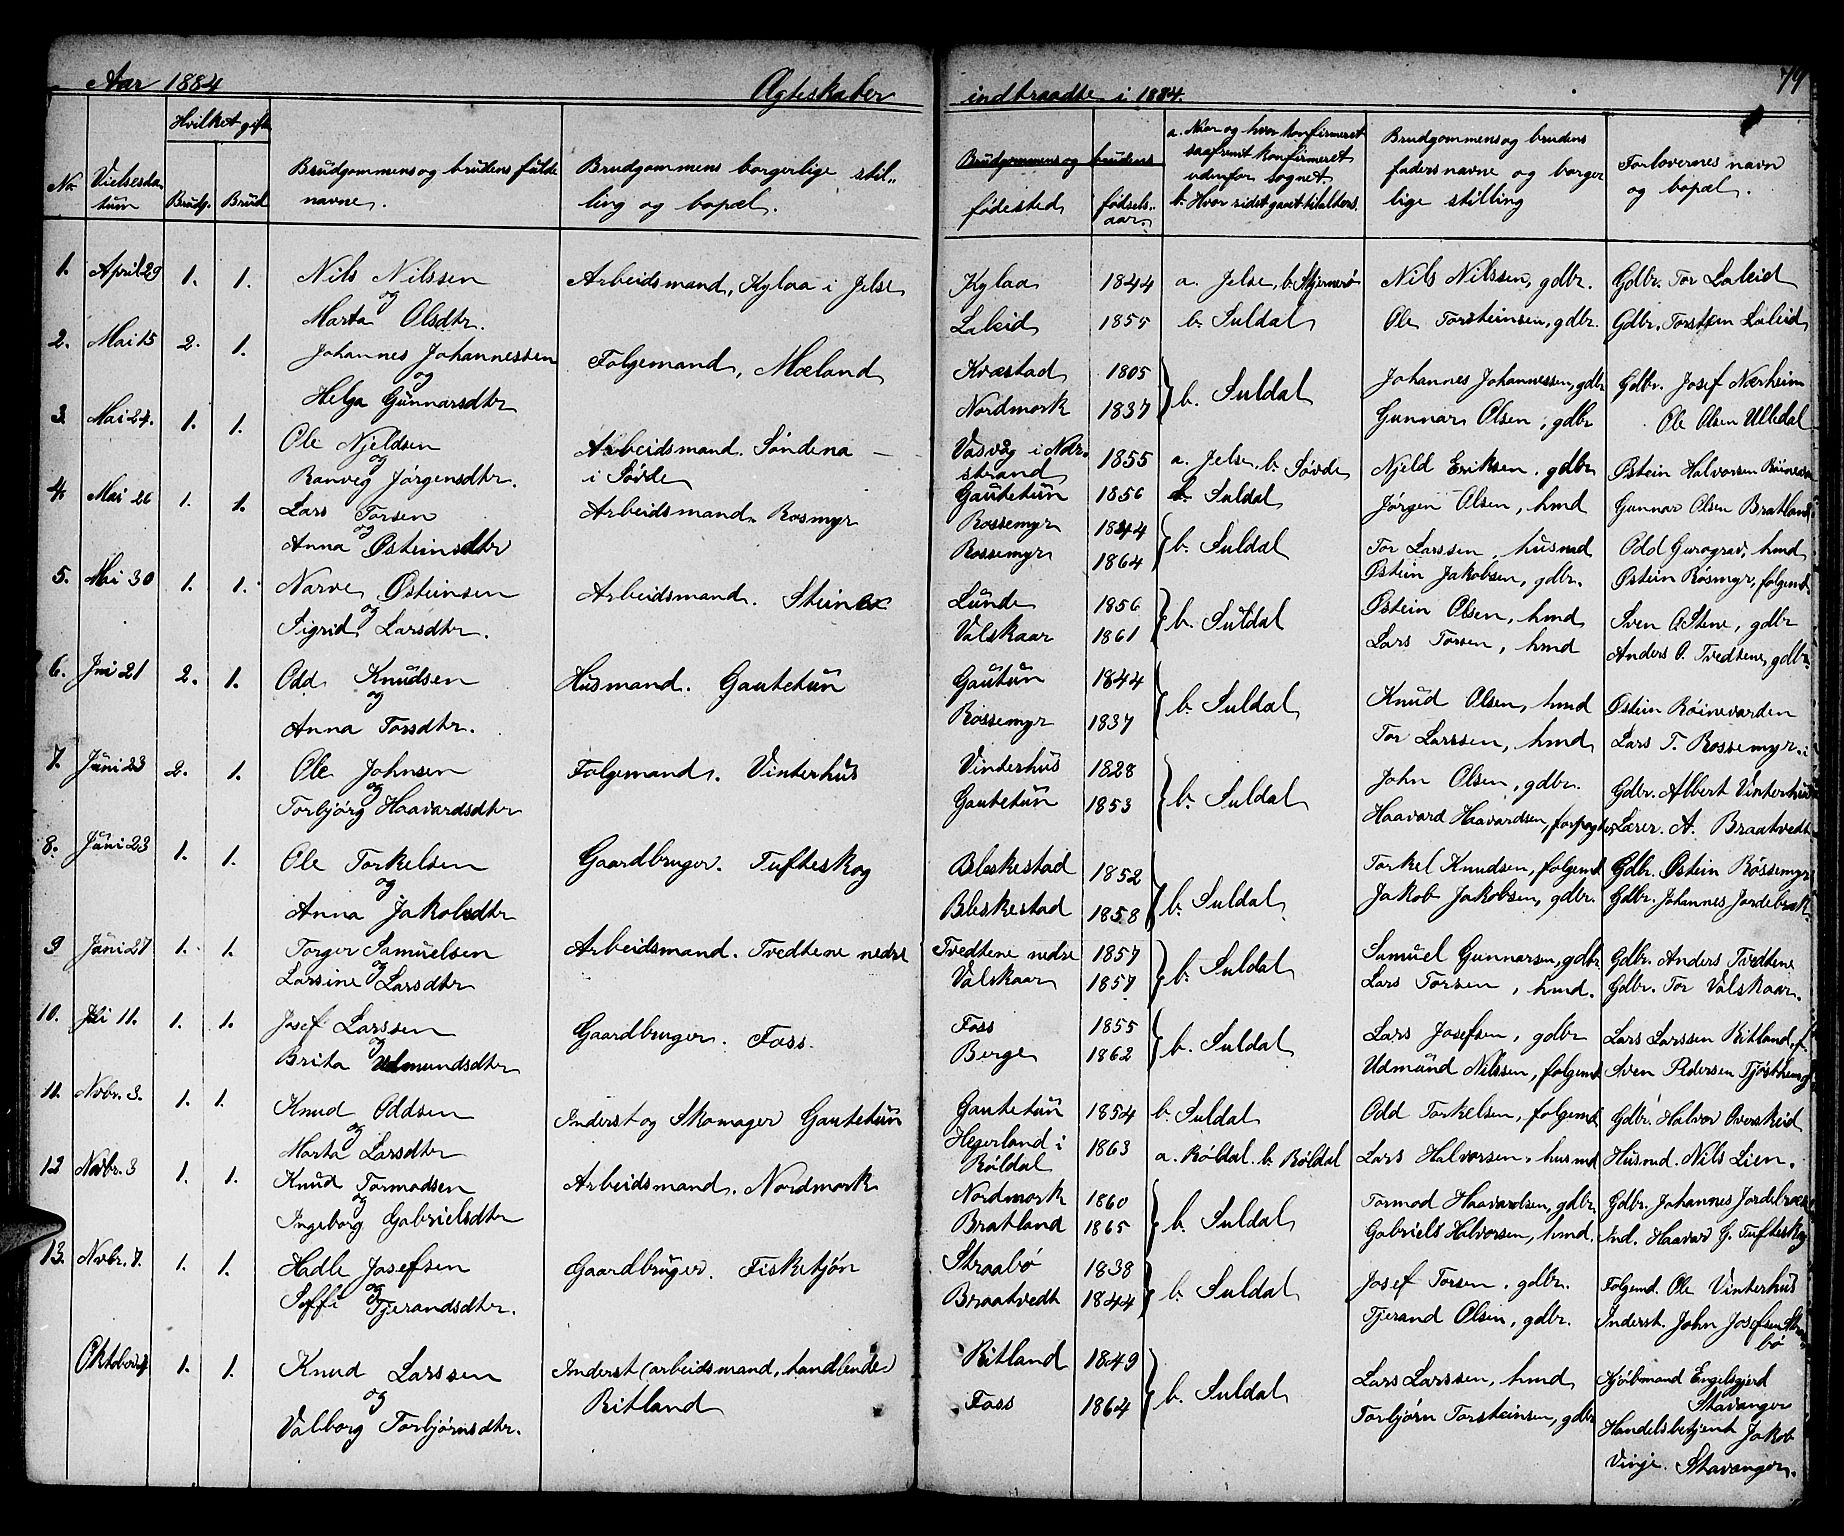 Aar 1884 Ægteskaber indtraadte i 1884. 79
No. Vielsesdatum Hvilket gifte Brudg. Brud Brudgommens og brudens fulde navne. Brudgommens borgerlige stilling og bopæl. Brudgommens og brudens fødested fødselsaar a. Naar og hvor konfirmeret saafremt konfirmeret udenfor sognet. b. Hvor sidst gavet tilaldens. Brudgommens og brudens faders navne og borgerlige stilling Forlovernes navn og bopæl.
1. April 29 1. 1. Nils Nilssen Arbeidsmand, Kylaa i Jelse Kylaa 1844 a. Jelse, b. Hjermerø Nils Nilssen, gdbr. Gdbr. Tor Laleid
og
Marta Olsdtr. Laleid 1855 b. Suldal Ole Torsteinsen, gdbr. Gdbr. Torsten Laleid
2. Mai 15 2. 1. Johannes Johannessen Folgemand, Mæland Kvæstad 1805 } b. Suldal Johannes Johannessen, gdbr Gdbr. Josef Nærheim
og
Helga Gunnarsdtr Nordmork 1837 Gunnar Olsen, gdbr Ole Olsen Ulledal
3. Mai 24. 1. 1. Ole Njeldsen Arbeidsmand. Søndena Vasvåg i Nærstrand 1855 a. Jelse, b. Søvde Njeld Eriksen, gdbr Østein Halvorsen
og i Søvde
Ranveg Jørgensdtr. Gautetun 1856 b. Suldal Jørgen Olsen, hmd Gunnar Olsen Bratland
4. Mai 26 1. 1. Lars Torsen Arbeidsmand. Rosmyr Rossemyr 1844 } b. Suldal Tor Larssen, husmd Odd Gurograv, hmd
og
Anna Østeinsdtr Rossemyr 1864 Østein Jakobsen, gdbr. Østein Røsmyr, folgemd
5. Mai 30 1. 1. Narve Østeinsen Arbeidsmand. Steine Lunde 1856 } b. Suldal Østein Olsen, hmd Sven O Stene, gdbr
og
Sigrid Larsdtr. Valskaar 1861 Lars Torsen, hmd Anders O. Tvedtene, gdbr.
6. Juni 21 2. 1. Odd Knudsen Husmand. Gautetun Gautun 1844 } b. Suldal Knud Olsen, hmd Østein Røinevarden
og
Anna Torsdtr. Rossemyr 1837 Tor Larssen, hmd Lars T. Rossemyr
7. Juni 23 2. 1. Ole Johnsen Folgemand. Vinterhus Vinterhus 1828 } b. Suldal John Olsen, gdbr. Gdbr. Albert Vinterhus
og
Torbjørg Haavardsdtr Gautetun 1853 Haavard Haavardsen, forpagter Lærer. A. Braatvedt
8. Juni 23 1. 1. Ole Torkelsen Gaardbruger. Tufteskog Bleskestad 1852 } b. Suldal Torkel Knudsen, folgemd Gdbr. Østein Røssemyr
og
Anna Jakobsdtr Bleskestad 1858 Jakob Jakobsen, gdbr. Gdbr. Johannes Jordebræk
9 Juni 27 1. 1. Torger Samuelsen Arbeidsmand. Tvedtene nedre Tvedtene nedre 1857 } b. Suldal Samuel Gunnarsen, gdbr Gdbr. Anders Tvedtene
og
Larsine Larsdtr Valskaar 1857 Lars Torsen, hmd. Gdbr. Tor Valskaar.
10. Juli 11. 1. 1. Josef Larssen Gaardbruger. Foss. Foss 1855 } b. Suldal Lars Josefsen, gdbr Lars Larssen Ritland, f
og
Brita Udmundsdtr Berge 1862 Udmund Nilssen, folgemd Sven Pedersen Tjøstheim
11. Novbr. 3. 1. 1. Knud Oddsen Inderst og Skomager Gautetun Gautetun 1854 b. Suldal Odd Torkelsen, folgemd Gdbr. Halvor Overskeid
og
Marta Larsdtr Hegerland i Røldal 1863 a. Røldal. b. Røldal Lars Halvorsen, husmd Husmd. Nils Lien.
12 Novbr. 3 1. 1. Knud Tormodsen Arbeidsmand. Nordmork Nordmork 1860 } b. Suldal Tormod Haavardsen, gdbr. Gdbr. Johannes Jordebræk
og
Ingeborg Gabrielsdtr Bratland 1865 Gabriels Halvorsen, hmd. Ind. Haavar G. Tufteskog
13. Novbr. 7. 1. 1. Hadle Josefsen Gaardbruger. Fisketjøn Straabø 1838 } b. Suldal Josef Torsen, gdbr. Folgemd. Ole Vinterhus
og
Soffi Tjerandsdtr. Braatvedt 1844 Tjerand Olsen, gdbr. Inderst. John Josefsen Straabø
Oktober 1. 1. Knud Larssen Inderst (arbeidsmand, handlende) Ritland 1849 } b. Suldal Lars Larssen, hmd Kjøbmand Engelsgjerd
og Ritland Stavanger
Valborg Torbjørnsdtr. Foss 1864 Torbjørn Torsteinsen, gdbr Handelsbetjent Jakob
Vinje. Stavanger.